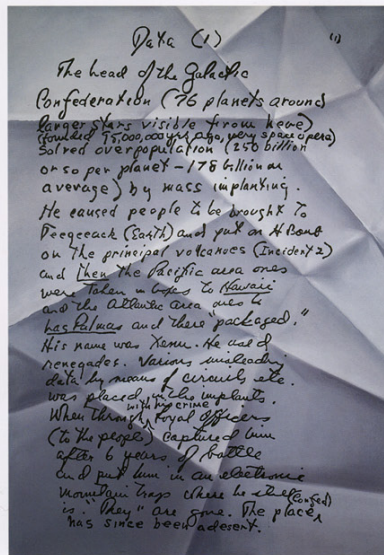 Data (1)
(1)
The head of the Galactic
Confederation (76 planets around
larger stars visible from here)
(founded 95,000,000 yrs ago, very space opera)
solved overpopulation (250 billion
or so per planet - 178 billion on
average) by mass implanting.
He caused people to be brought to
Teegeeack (Earth) and put an H Bomb
on the principal volcanoes (Incident 2)
and then the Pacific area ones
were taken in boxes to Hawaii
and the Atlantic area ones to
Las Palmas and there "packaged."
His name was Xenu. He used
renegades. Various misleading
data by means of circuits etc.
was placed in the implants.
When through with his crime Loyal Officers
(to the people) captured him
after 6 years of battle
and put him in an electronic
mountain trap where he still
is. "They" are gone. The place (Confed)
has since been a desert.